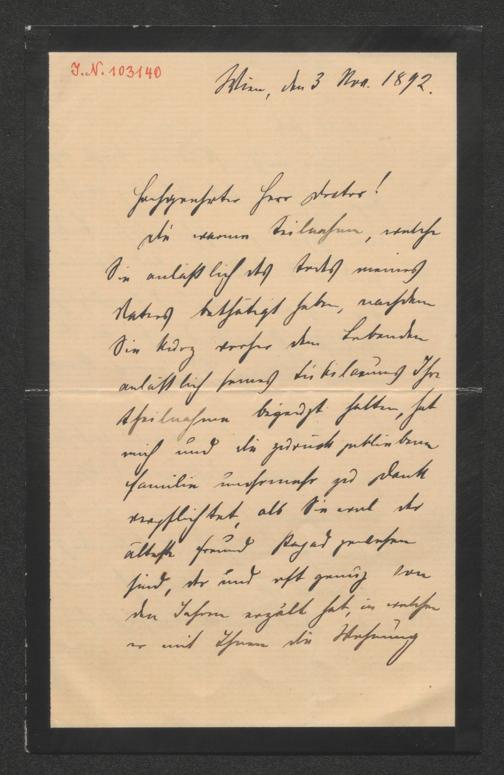 J. N. 103140
Wien, den 3 Nov. 1892.
Hochgeehrter Herr Doctor!
Die warme Teilnahme, welche
Sie anläßlich des Todes meines
Vaters bethätigt haben, nachdem
Sie kurz vorher dem Lebenden
anläßlich seines Jubiläums Ihre
Theilnahme bezeigt hatten, hat
mich und die zurückgebliebene
Familie umsomehr zu Dank
verpflichtet, als Sie wol der
älteste Freund Papas gewesen
sind, der uns oft genug von
den Jahren erzält hat, in welchen
er mit Ihnen die Wohnung